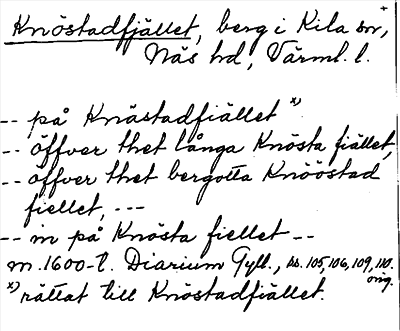 Knöstadfjället, berg i Kila sn, +
Näs hd, Värml. l.
-- på Knästadfiället x)
-- öffver thet långa Knösta fiället,
-- öffver thet bergotta Knööstad
fiellet, ---
-- in på Knösta fiellet --
m. 1600-t. Diarium Gyll., ss. 105, 106, 109, 110.
orig.
x) rättat till Knöstadfjället.